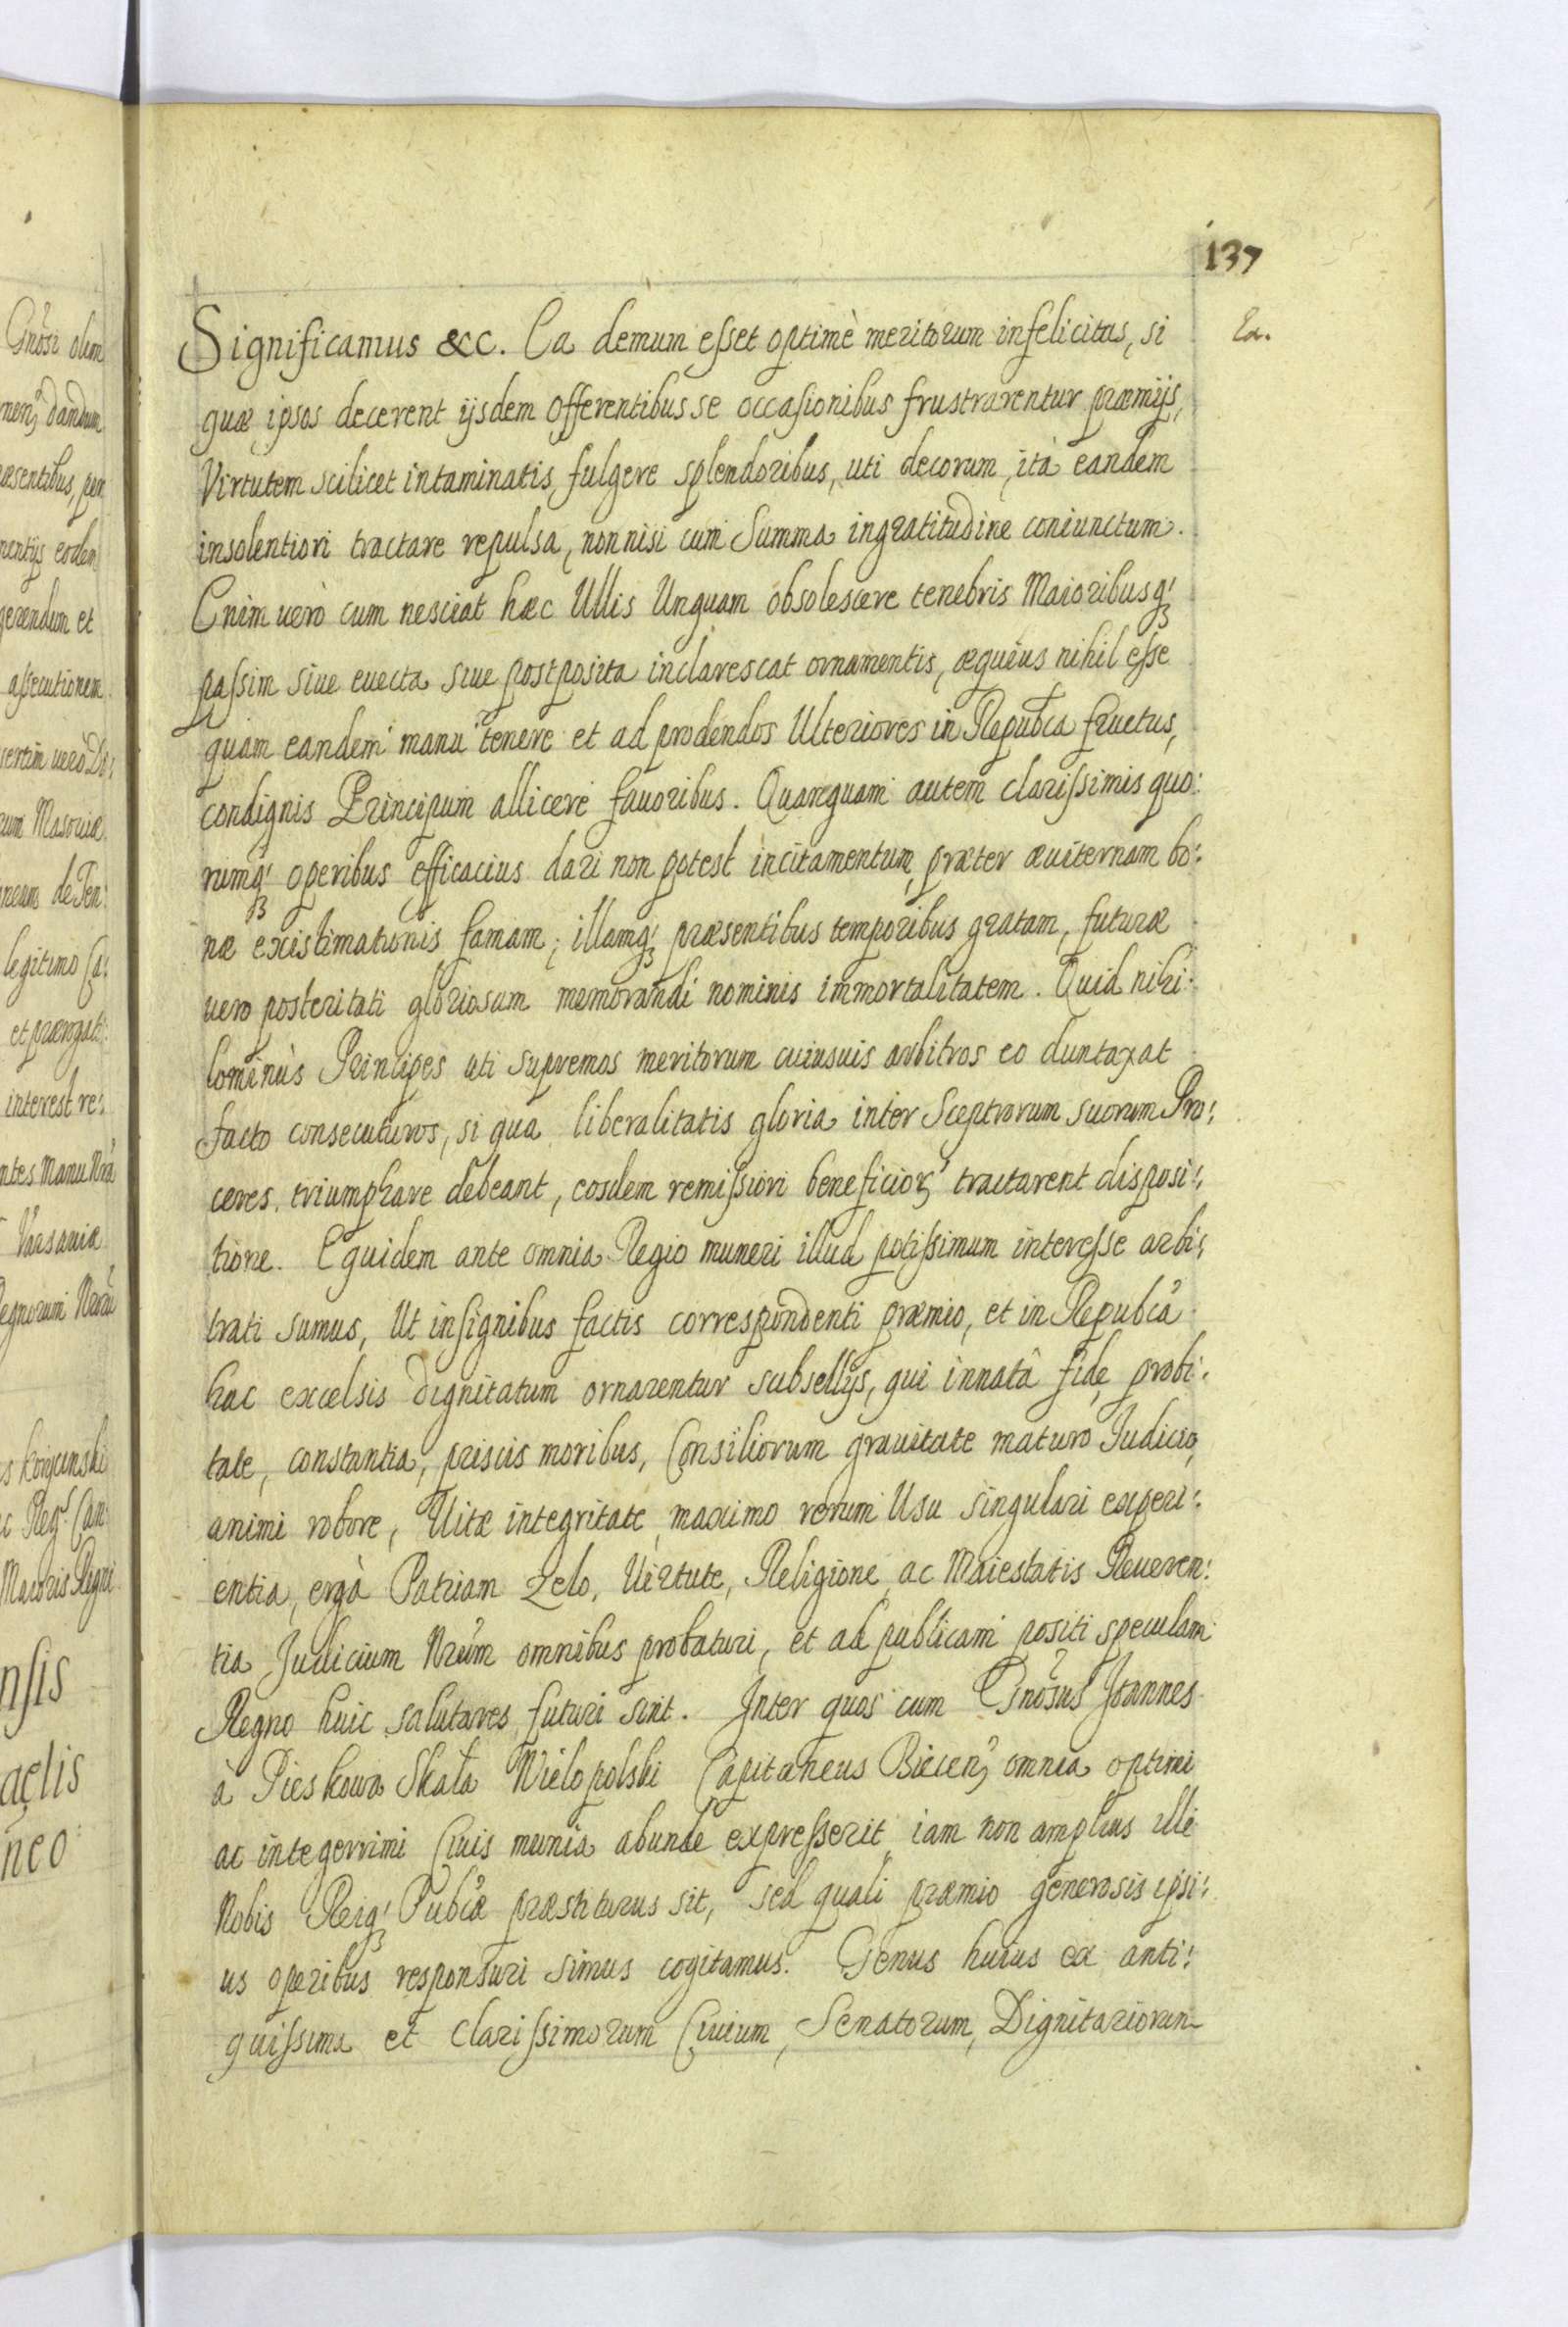 137
Significamus &c. Ea demum esset optimè meritorum infelicitas, si
Ex.
quæ ipsos decerent ijsdem offerentibus se occasionibus frustrarentur præmijs,
Virtutem scilicet intaminatis fulgere splendoribus, uti decorum, ità eandem
insolentiori tractare repulsa, non nisi cum Summa ingratitudine coniunctum.
Enim uerò cum nesciat hæc Ullis Unquam obsolescere tenebris Maioribusq;
passim siue euecta siue postposita inclarescat ornamentis, æquius nihil esse
quam eandem manu tenere et ad prodendos Ulteriores in Repubca fructus,
condignis Principum allicere fauoribus. Quamquam autem clarissimis quo:
rumq; operibus efficacius dari non potest incitamentum, præter æuiternam bo:
næ existimationis famam; illamq; præsentibus temporibus gratam, futuræ
uero posteritati gloriosam memorandi nominis immortalitatem. Quid nihi:
lominùs Principes uti supremos meritorum cuiusuis arbitros eo duntaxat
facto consecuturos, si qua liberalitatis gloria inter Sceptrorum suorum Pro:
ceres triumphare debeant, eosdem remissiori beneficior. tractarent disposi:
tione. Equidem ante omnia Regio muneri illud potissimum interesse arbi:
trati sumus, Ut insignibus factis correspondenti præmio, et in Repubcâ
hac excelsis dignitatum ornarentur subsellijs, qui innatâ fide, probi:
tate, constantia, priscis moribus, Consiliorum grauitate maturo Judicio,
animi robore, Uitæ integritate, maximo rerum Usu singulari experi:
entia, ergà Patriam Zelo, Uirtute, Religione, ac Maiestatis Reueren:
tia Judicium Nrum omnibus probaturi, et ad publicam positi speculam
Regno huic salutares futuri sint. Inter quos cum Gnosus Joannes
à Pieskowa Skała Wielopolski Capitaneus Biecen; omnia optimi
ac integerrimi Ciuis munia abundè expresserit, iam non amplius ille
Nobis Reiq; Pubcæ præstiturus sit, sed quali præmio generosis ipsi:
us operibus responsuri simus cogitamus. Genus huius ex anti:
quissima et Clarissimorum Ciuium, Senatorum, Dignitariorum